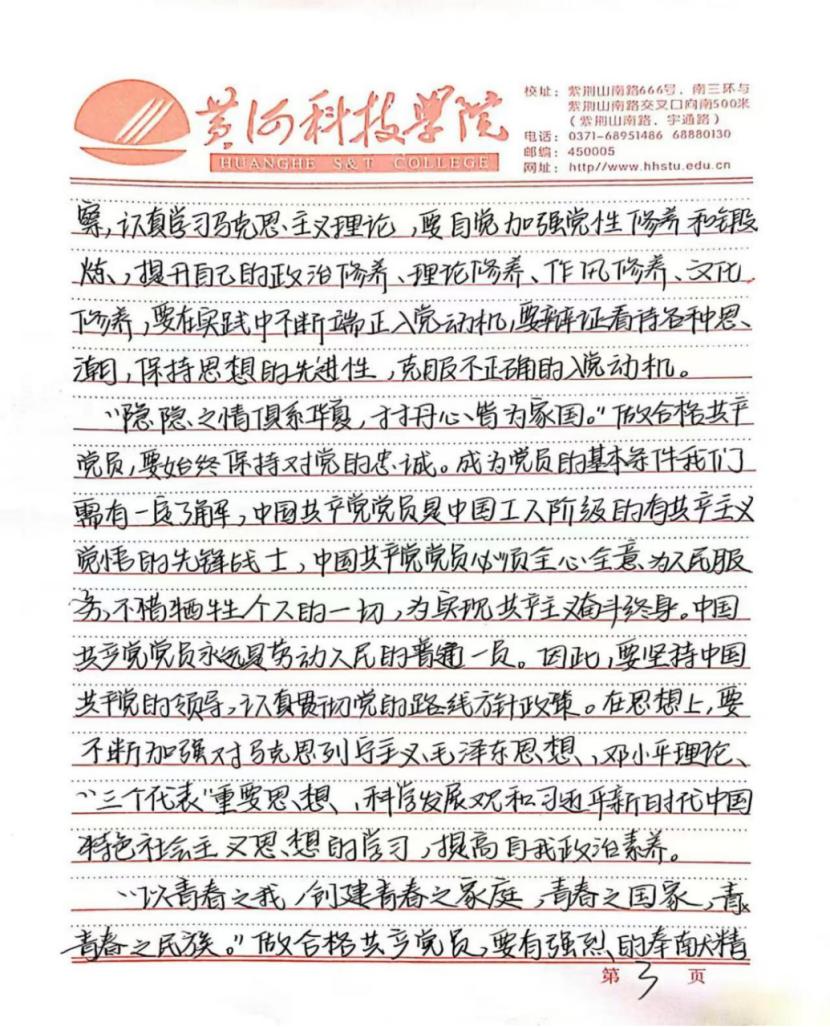 黄河科技学院
HUANGHE S&T COLLEGE
校址：紫荆山南路666号，南三环与
紫荆山南路交叉口向南500米
（紫荆山南路，宇通路）
电话：0371-68951486 68880130
邮编：450005
网址：http//www.hhstu.edu.cn
察，认真学习马克思主义理论，要自觉加强党性修养和锻
炼，提升自己的政治修养、理论修养、作风修养、文化
修养，要在实践中不断端正入党动机，要辩证看待各种思
潮，保持思想的先进性，克服不正确的入党动机。
“隐隐之情俱系华夏，寸寸丹心皆为家国。”做合格共产
党员，要始终保持对党的忠诚。成为党员的基本条件我们
需有一定了解，中国共产党党员是中国工人阶级的有共产主义
觉悟的先锋战士，中国共产党党员必须全心全意为人民服
务，不惜牺牲个人的一切，为实现共产主义奋斗终身。中国
共产党党员永远是劳动人民的普通一员。因此，要坚持中国
共产党的领导，认真贯彻党的路线方针政策。在思想上，要
不断加强对马克思列宁主义、毛泽东思想、邓小平理论、
“三个代表”重要思想、科学发展观和习近平新时代中国
特色社会主义思想的学习，提高自我政治素养。
“以青春之我，创建青春之家庭，青春之国家，青
青春之民族。”做合格共产党员，要有强烈的奉献精
第 3 页